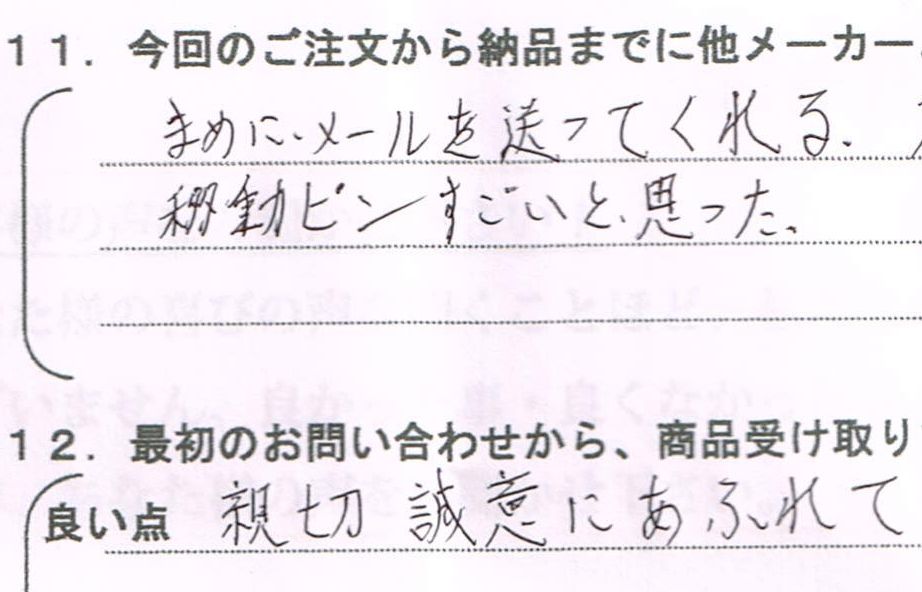 11. 今回のご注文から納品までに他メーカー
まめに、メールを送ってくれる、
動ピンすごいと、思った、
12. 最初のお問い合わせから、商品受け取り
良い点 親切 誠意にあふれて